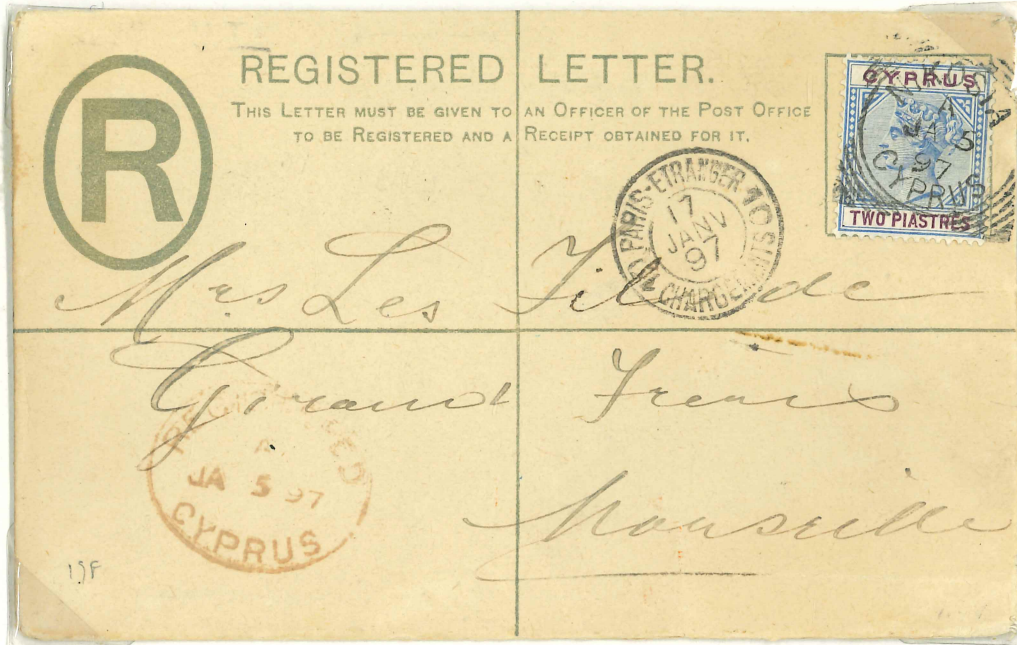 R
REGISTERED LETTER.
THIS LETTER MUST BE GIVEN TO AN OFFICER OF THE POST OFFICE
TO BE REGISTERED AND A RECEIPT OBTAINED FOR IT.
CYPRUS
TWO PIASTRES
A
JA 5
97
CYPRUS
PARIS-ETRANGER
17
JANV
97
CHARGEMENTS
Mrs Les Fils de
Giraud Freres
Marseille
REGISTERED
A
JA 5 97
CYPRUS